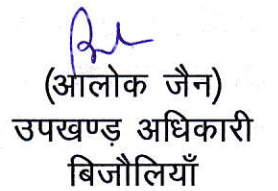 (आलोक जैन)
उपखण्ड़ अधिकारी
बिजौलियाँ